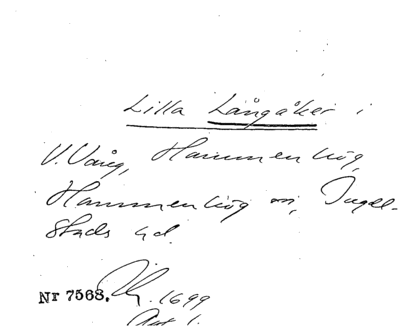 Lilla Långåker i
V. Vång, Hammenhög,
Hammenhög sn, Ingel-
stads hd.
Nr 7568. 1699